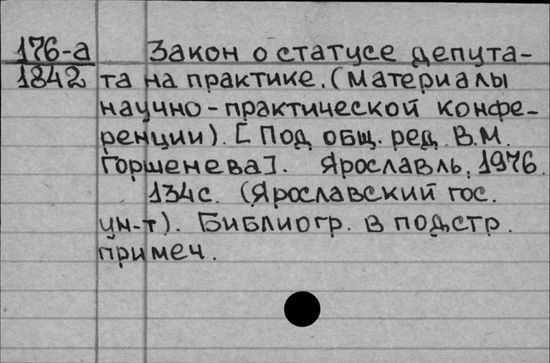 176-а Закон о статусе депута-
1842 та на практике. (Материалы
научно-практической конфе-
ренции). [Под общ. ред. В.М.
Горшенева]. Ярославль, 1976.
134с. (Ярославский гос.
ун-т). Библиогр. в подстр.
примеч.